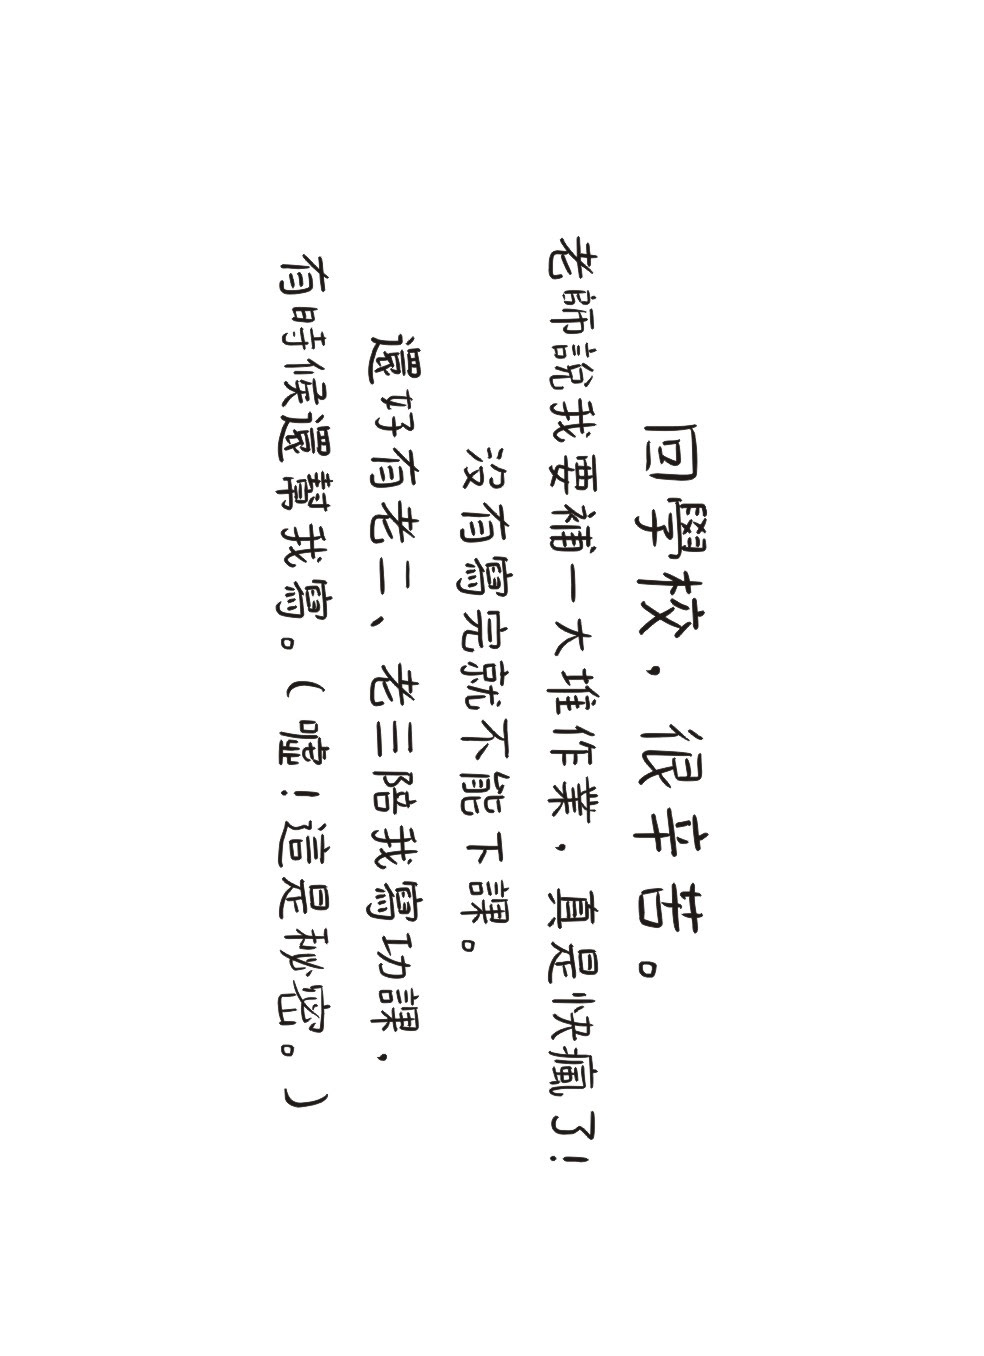 回學校，很辛苦。
老師說我要補一大堆作業，真是快瘋了！
沒有寫完就不能下課。
還好有老二、老三陪我寫功課，
有時候還幫我寫。（噓！這是秘密。）